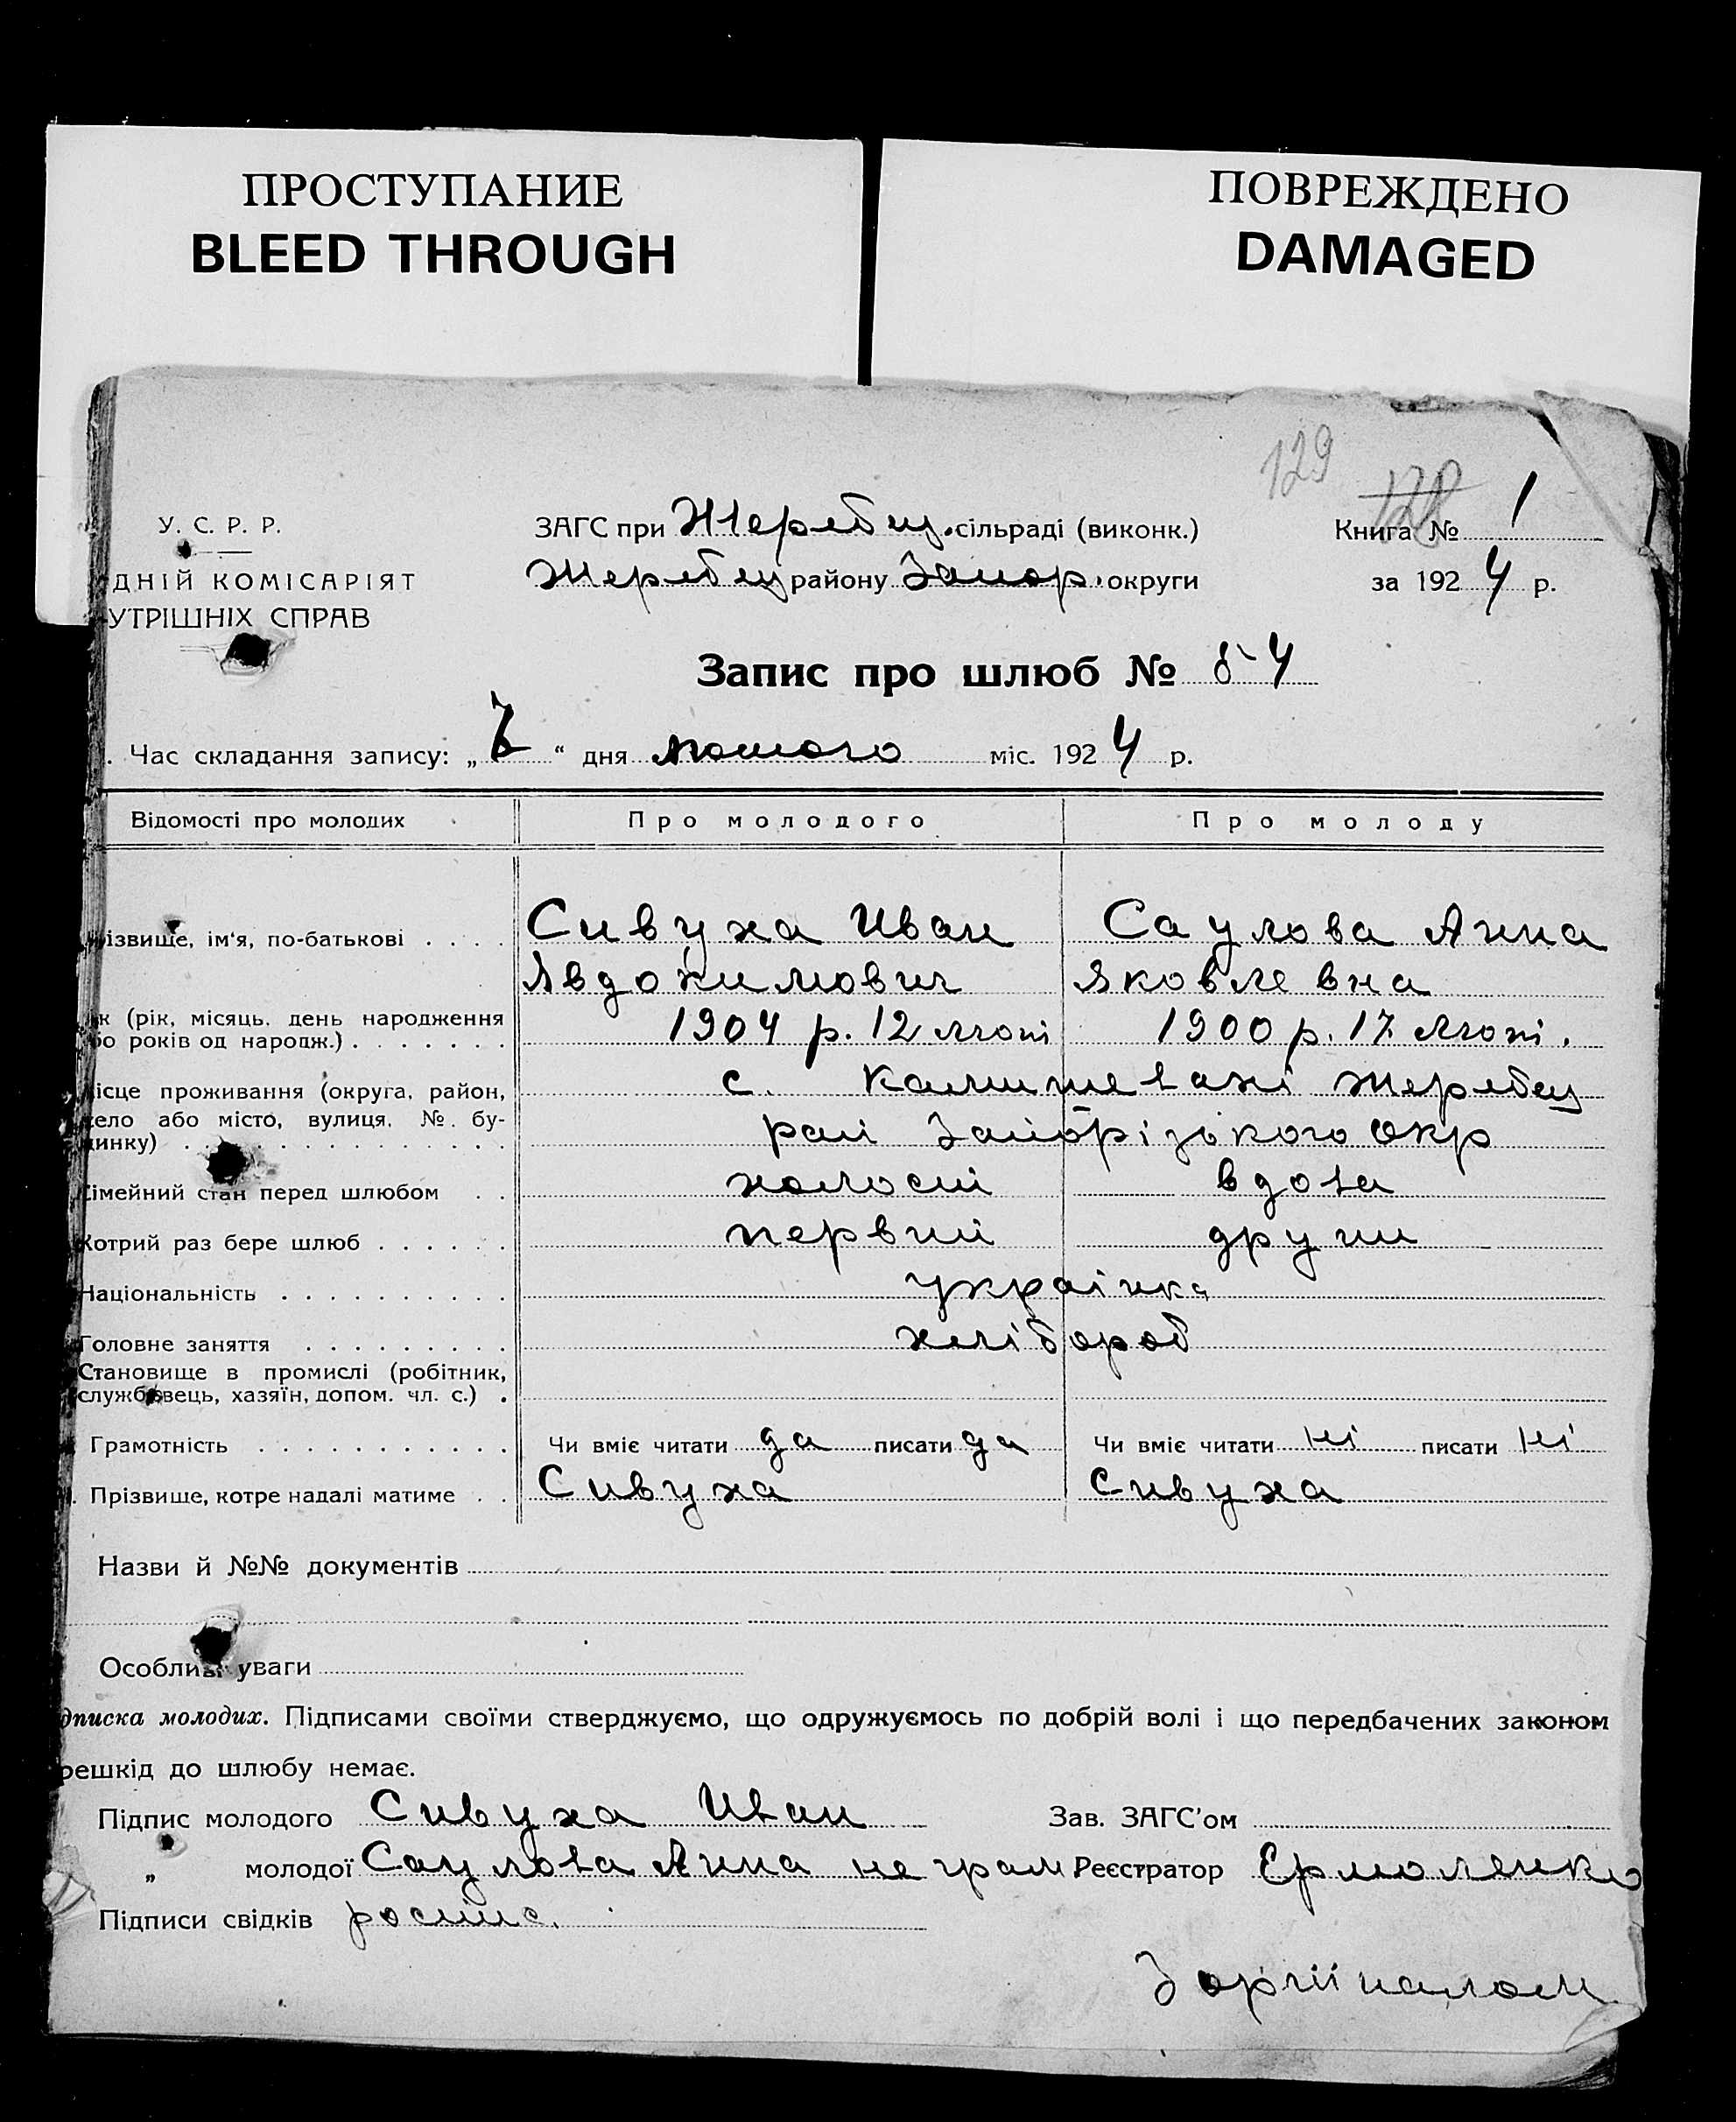 ПРОСТУПАНИЕ
BLEED THROUGH
ПОВРЕЖДЕНО
DAMAGED
129
128
У. С. Р. Р.
ДНІЙ КОМІСАРІЯТ
УТРІШНІХ СПРАВ
ЗАГС при Жеребец. сільраді (виконк.)
Жеребец району Запор. округи
Книга № 1
за 1924 р.
Запис про шлюб № 54
Час складання запису: „7“ дня лютого міс. 1924 р.
Відомості про молодих Про молодого Про молоду
ізвище, ім'я, по-батькові . . . . Сивуха Иван Саулова Анна
Явдокимович Яковлевна
к (рік, місяць, день народження
бо років од народж.) . . . . . . . 1904 р. 12 1900 р. 17
ісце проживання (округа, район, с. Жеребец
село або місто, вулиця, №. бу-
динку) . . . . . . . . . . . . . . Запорізького окр
Сімейний стан перед шлюбом . . холостий вдова
Котрий раз бере шлюб . . . . . . первий
Національність . . . . . . . . . . українка
Головне заняття . . . . . . . . . хлібороб
Становище в промислі (робітник,
службовець, хазяїн, допом. чл. с.) .
Грамотність . . . . . . . . . . . Чи вміє читати да писати да Чи вміє читати ні писати ні
. Прізвище, котре надалі матиме . . Сивуха Сивуха
Назви й №№ документів
Особливі уваги
дписка молодих. Підписами своїми стверджуємо, що одружуємось по добрій волі і що передбачених законом
решкід до шлюбу немає.
Підпис молодого Сивуха Иван Зав. ЗАГС'ом
„ молодої Саулова Анна не грам Реєстратор Ермоленко
Підписи свідків